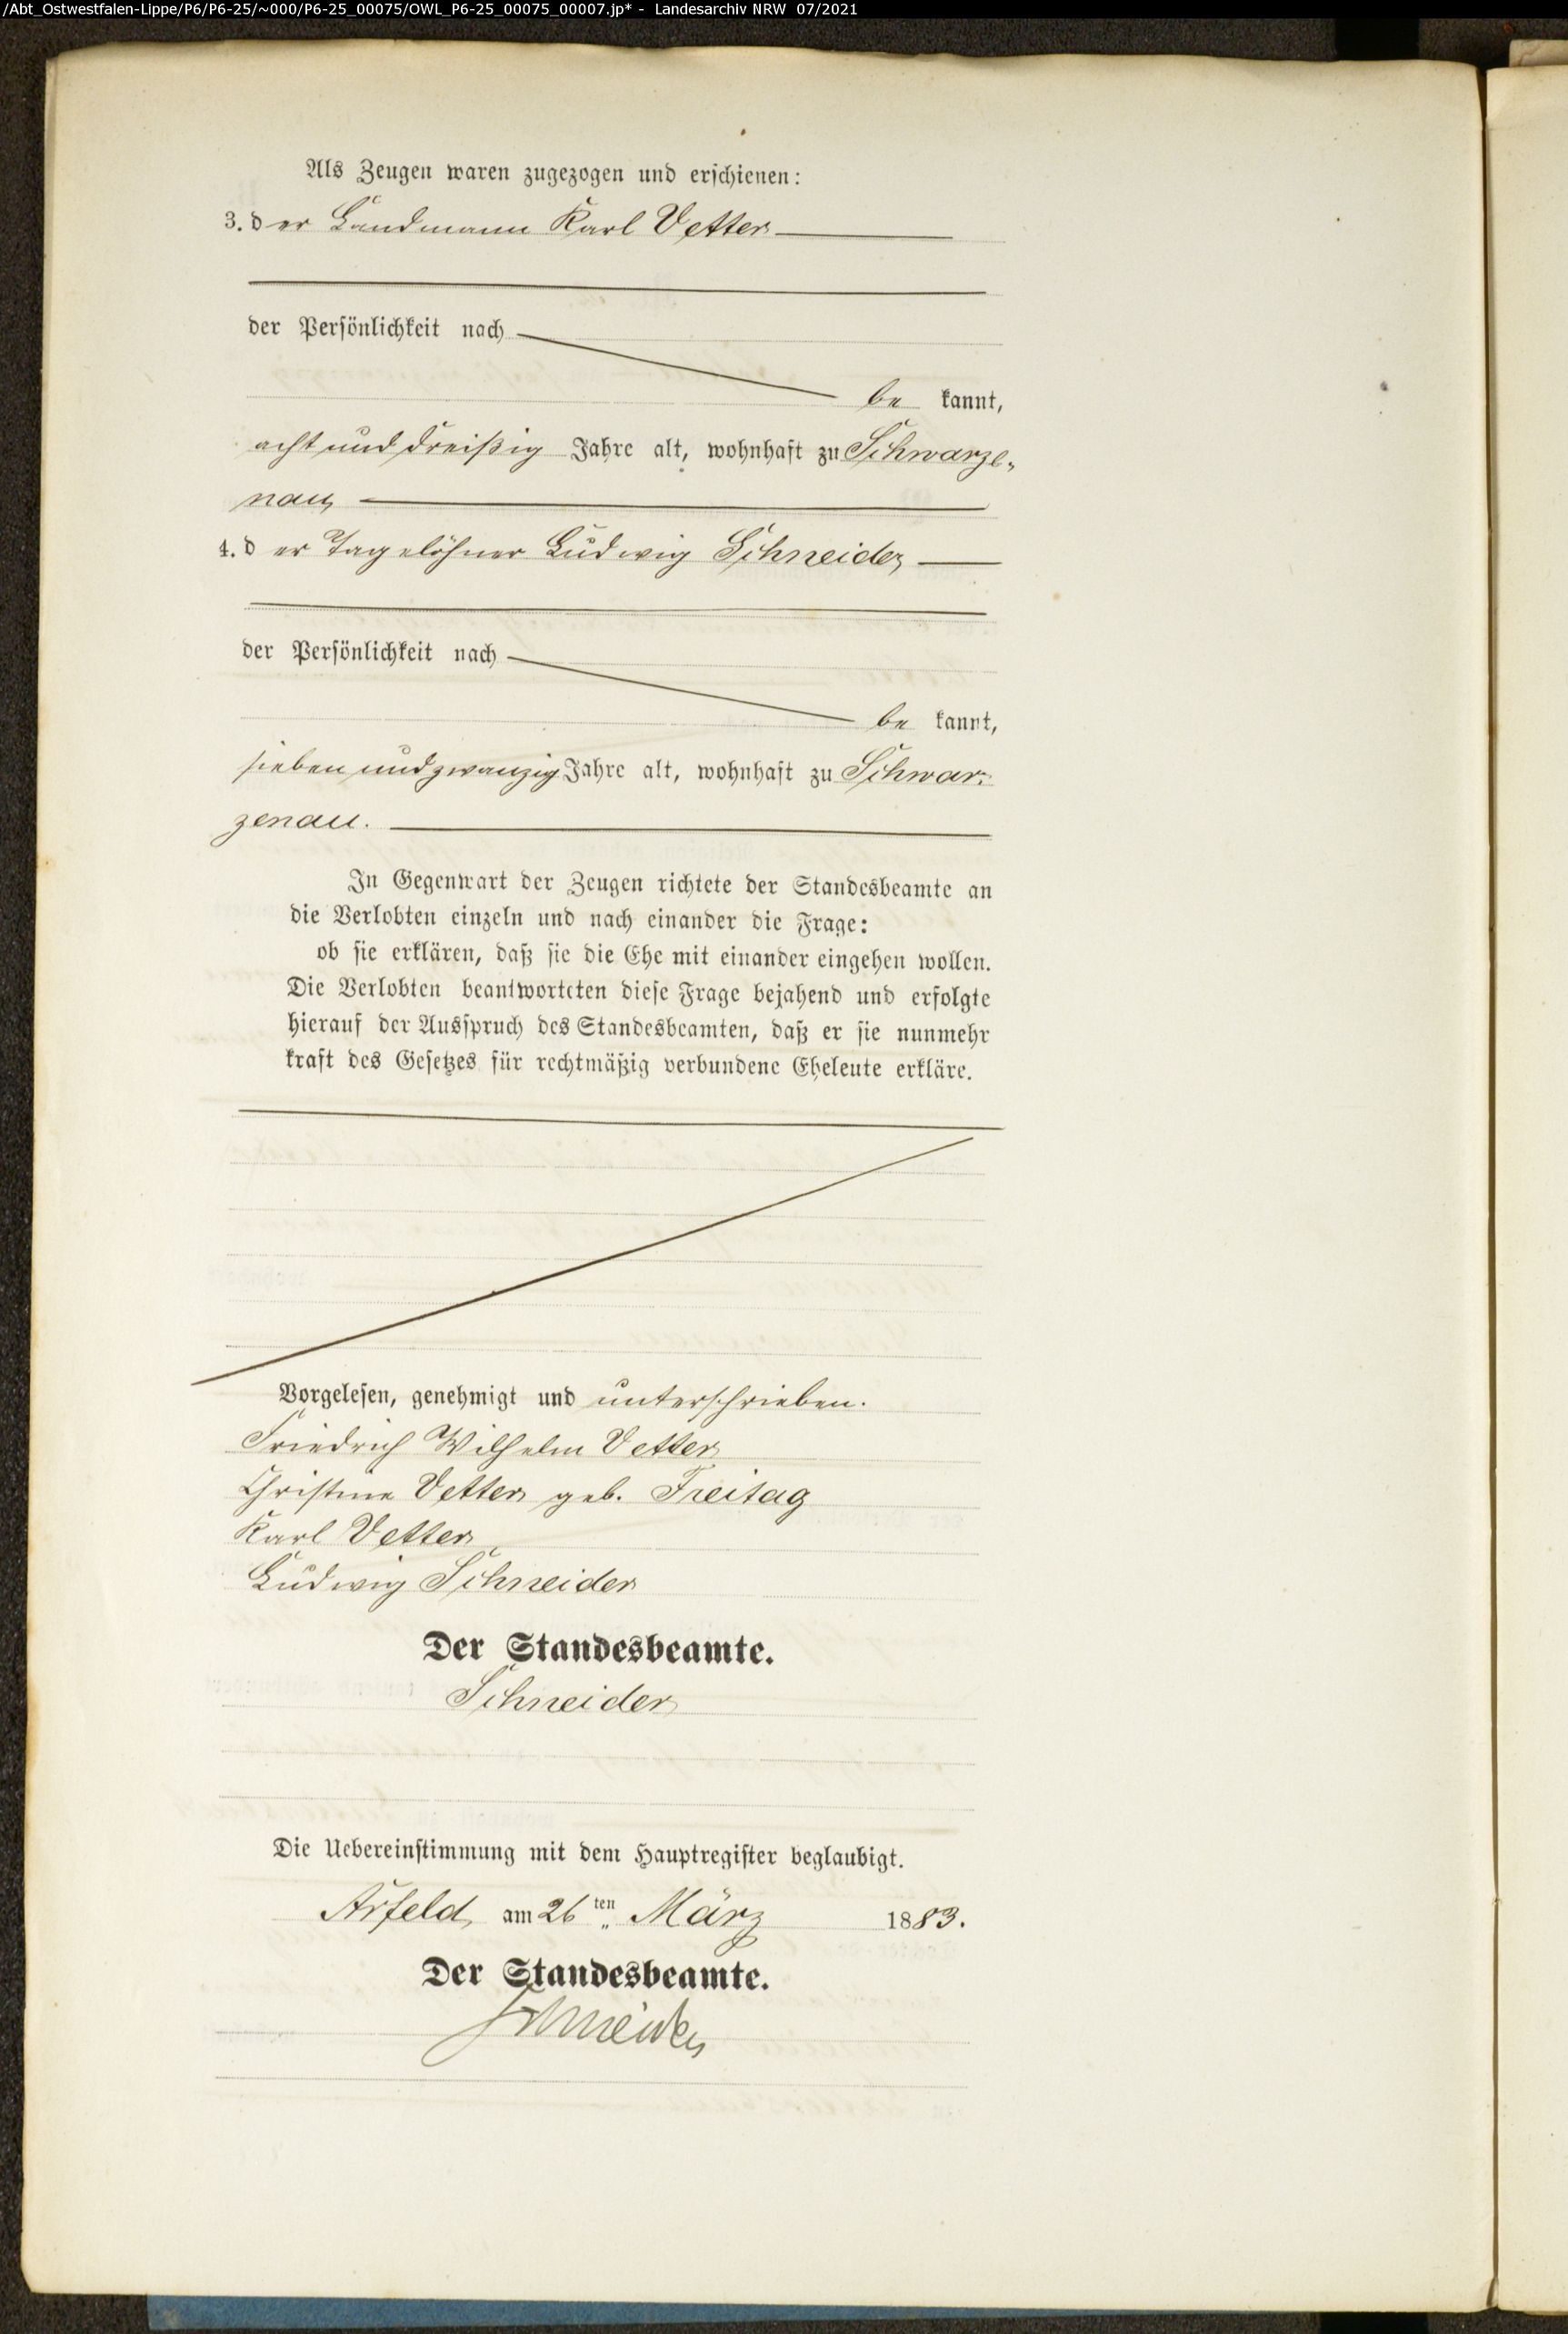 /Abt_Ostwestfalen-Lippe/P6/P6-25/~000/P6-25_00075/OWL_P6-25_00075_00007.jp* - Landesarchiv NRW 07/2021
Als Zeugen waren zugezogen und erschienen:
3. der Landmann Karl Vetter
der Persönlichkeit nach
be kannt,
acht und dreißig Jahre alt, wohnhaft zu Schwarze-
nau,
4. d er Tagelöhner Ludwig Schneider,
der Persönlichkeit nach
be kannt,
sieben und zwanzig Jahre alt, wohnhaft zu Schwar-
zenau.
In Gegenwart der Zeugen richtete der Standesbeamte an
die Verlobten einzeln und nach einander die Frage:
ob sie erklären, daß sie die Ehe mit einander eingehen wollen.
Die Verlobten beantworteten diese Frage bejahend und erfolgte
hierauf der Ausspruch des Standesbeamten, daß er sie nunmehr
kraft des Gesetzes für rechtmäßig verbundene Eheleute erkläre.
Vorgelesen, genehmigt und unterschrieben.
Friedrich Wilhelm Vetter
Christine Vetter geb. Freitag
Karl Vetter
Ludwig Schneider
Der Standesbeamte.
Schneider
Die Uebereinstimmung mit dem Hauptregister beglaubigt.
Arfeld, am 26ten März 1883.
Der Standesbeamte.
Schneider